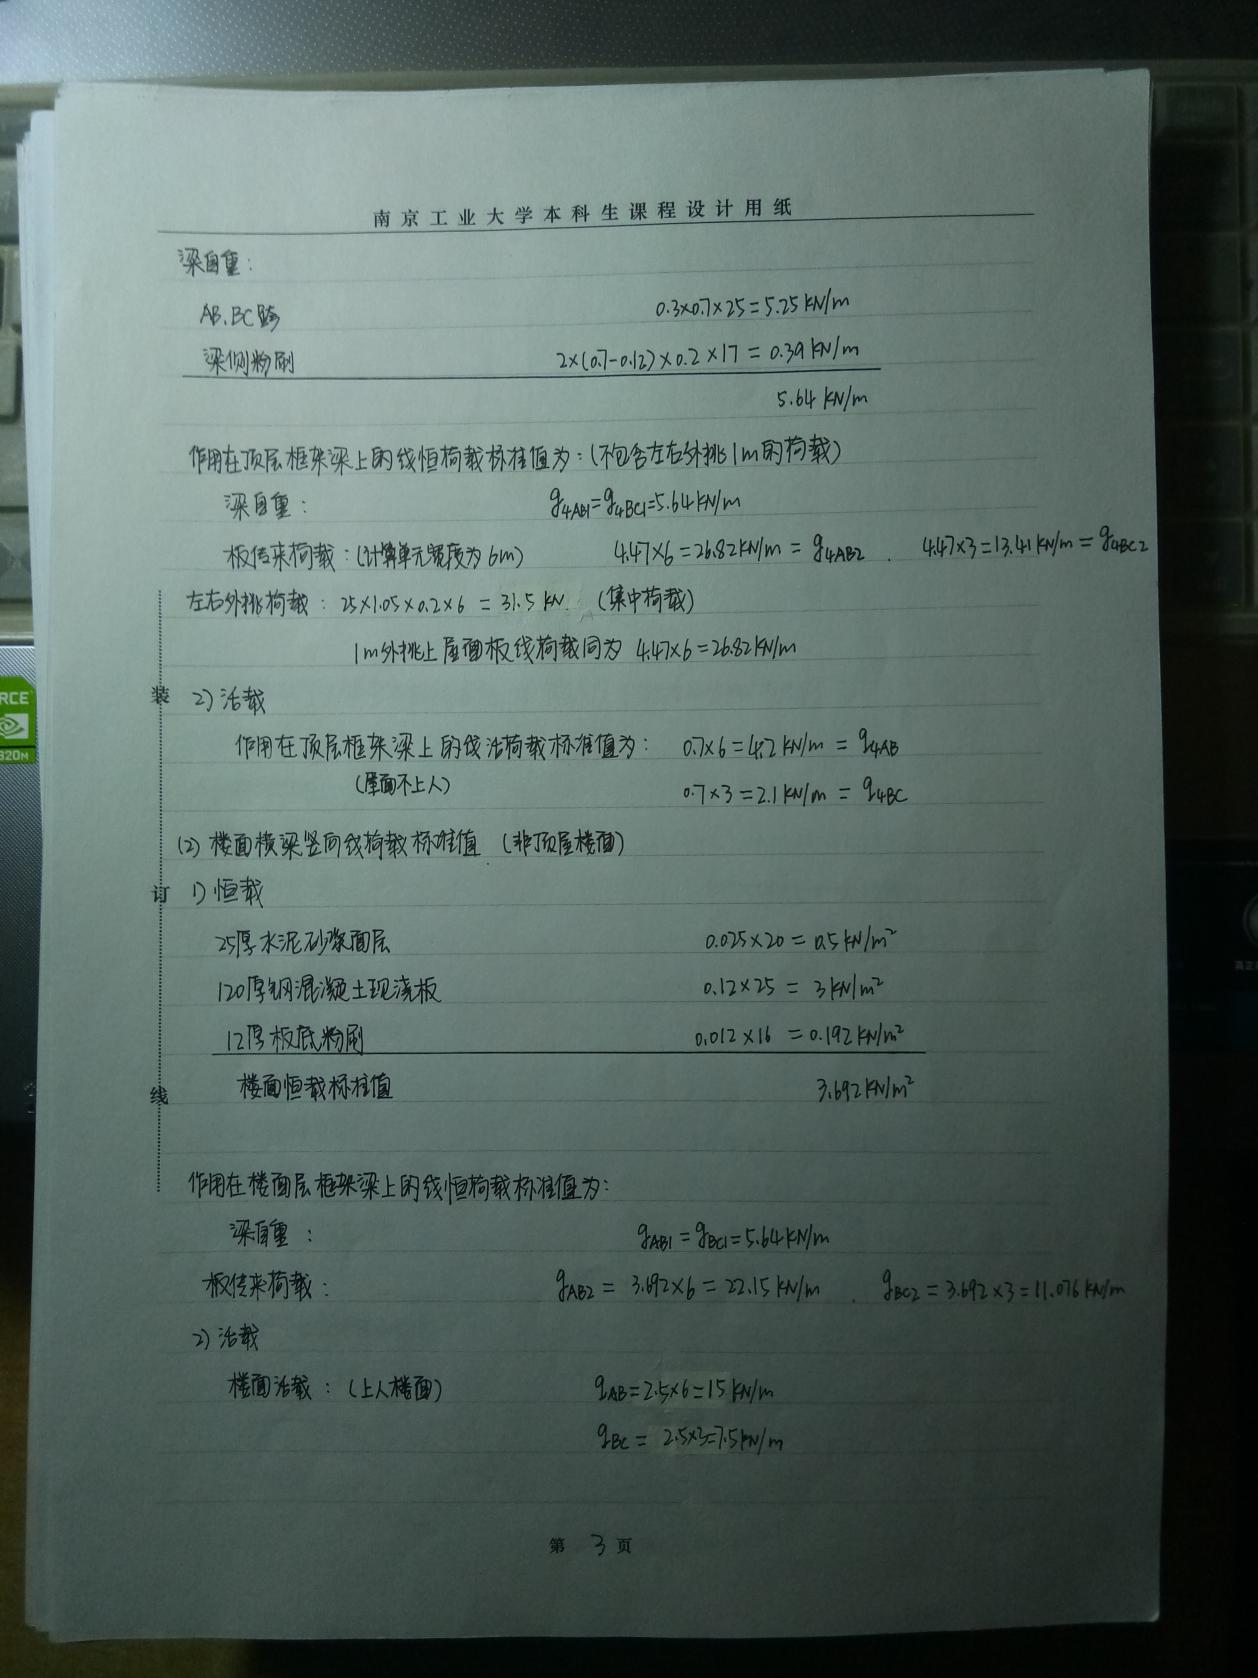 南京工业大学本科生课程设计用纸
梁自重:
AB、BC跨 0.3×0.7×25=5.25KN/m
梁侧粉刷 2×(0.7-0.12)×0.2×17=0.39KN/m
5.64KN/m
作用在顶层框架梁上的线恒荷载标准值为:(不包含左右外挑1m的荷载)
梁自重: g4AB1=g4BC1=5.64KN/m
板传来荷载:(计算单元宽度为6m) 4.47×6=26.82KN/m=g4AB2 . 4.47×3=13.41KN/m=g4BC2
左右外挑荷载: 25×1.05×0.2×6=31.5KN. (集中荷载)
1m外挑上屋面板线荷载同为 4.47×6=26.82KN/m
装
2)活载
作用在顶层框架梁上的线活荷载标准值为: 0.7×6=4.2KN/m=q4AB
(屋面不上人) 0.7×3=2.1KN/m=q4BC
(2)楼面横梁竖向线荷载标准值 (非顶层楼面)
订
1)恒载
25厚水泥砂浆面层 0.025×20=0.5KN/m²
120厚钢混凝土现浇板 0.12×25=3KN/m²
12厚板底粉刷 0.012×16=0.192KN/m²
线
楼面恒载标准值 3.692KN/m²
作用在楼面层框架梁上的线恒荷载标准值为:
梁自重: gAB1=gBC1=5.64KN/m
板传来荷载: gAB2=3.692×6=22.15KN/m . gBC2=3.692×3=11.076KN/m
2)活载
楼面活载:(上人楼面) qAB=2.5×6=15KN/m
qBC=2.5×3=7.5KN/m
第 3 页
RCE
820M